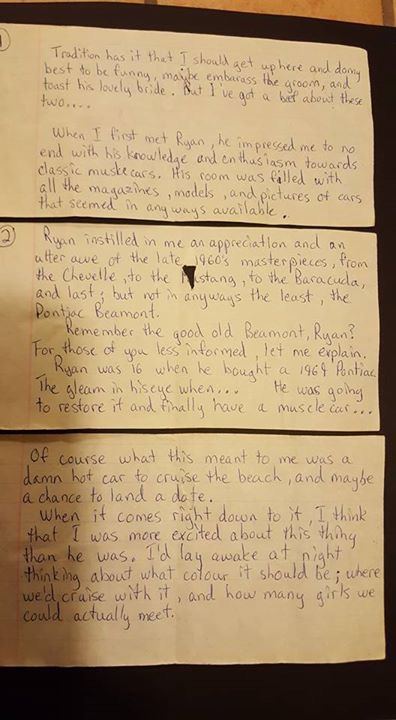 1
Tradition has it that I should get up here and do my
best to be funny, maybe embarass the groom, and
toast his lovely bride. But I've got a bet about these
two....
When I first met Ryan, he impressed me to no
end with his knowledge and enthusiasm towards
classic muscle cars. His room was filled with
all the magazines, models, and pictures of cars
that seemed in any ways available..
2
Ryan instilled in me an appreciation and an
utter awe of the late 1960's masterpieces, from
the Chevelle, to the Mustang, to the Baracuda,
and last, but not in anyways the least, the
Pontiac Beamont.
Remember the good old Beamont, Ryan?
For those of you less informed, let me explain.
Ryan was 16 when he bought a 1969 Pontiac.
The gleam in his eye when... He was going
to restore it and finally have a muscle car...
Of course what this meant to me was a
damn hot car to cruise the beach, and maybe
a chance to land a date.
When it comes right down to it, I think
that I was more excited about this thing
than he was. I'd lay awake at night
thinking about what colour it should be; where
we'd cruise with it, and how many girls we
could actually meet.